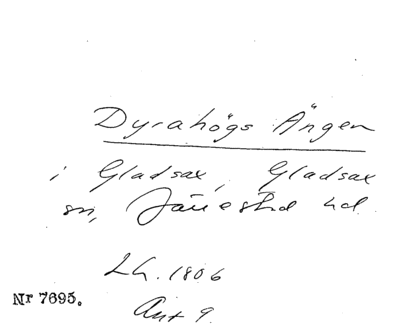 Dyrahögs Ängen
i Gladsax, Gladsax
sn, Järrestad hd.
Lh. 1806
Nr 7695.
Akt 9.